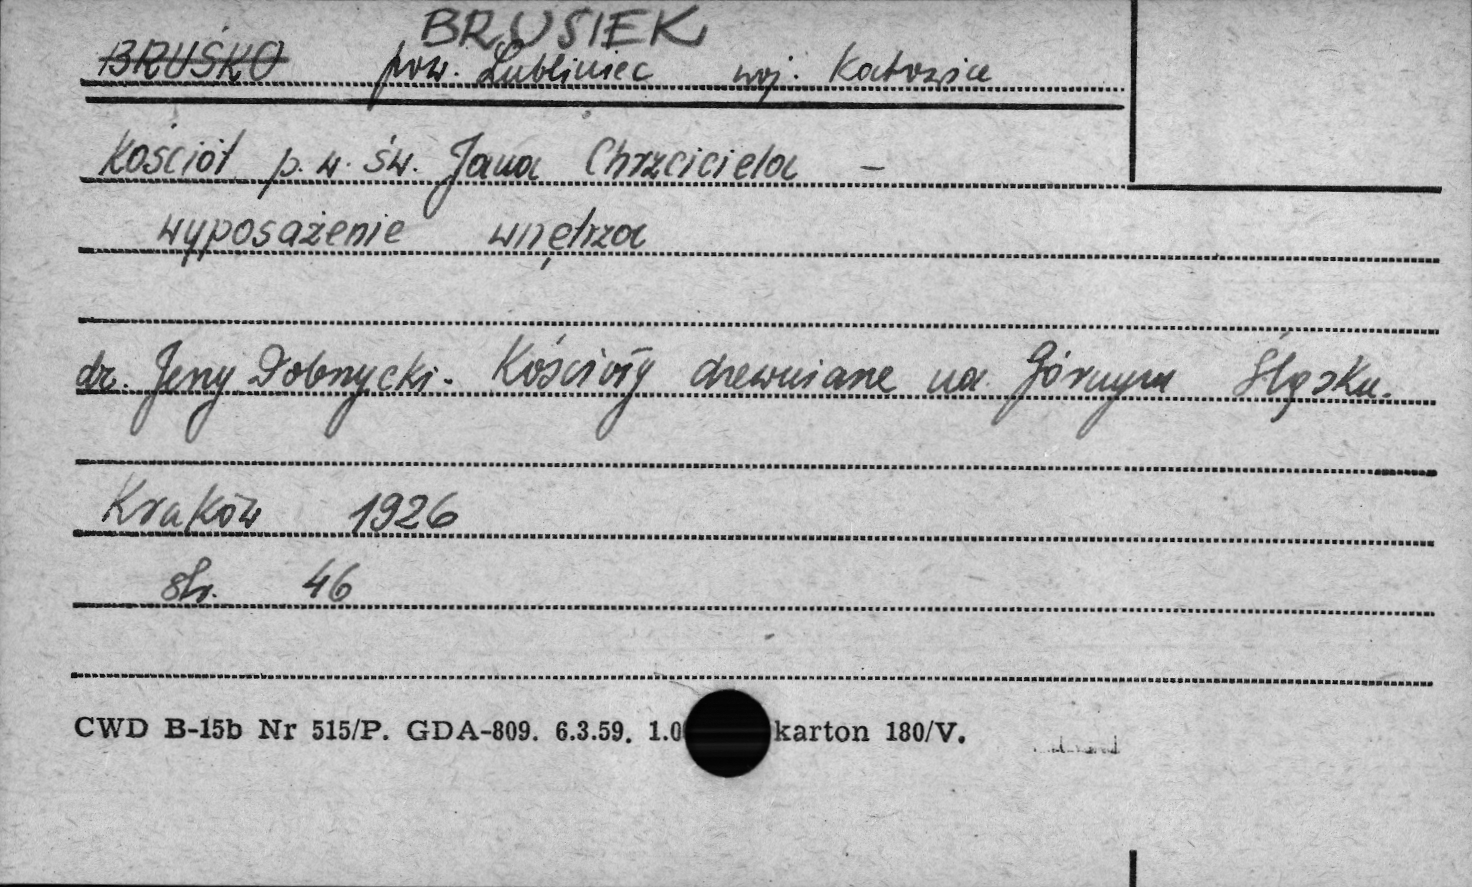 BRUSIEK
BRUŚKO pow. Lubliniec woj. Katowice
Kościół p.w. św. Jana Chrzciciela –
wyposażenie wnętrza
dr. Jerzy Dobrzycki. Kościoły drewniane na Górnym Śląsku.
Kraków 1926
str. 46
CWD B-15b Nr 515/P. GDA-809. 6.3.59. 1.0 karton 180/V.